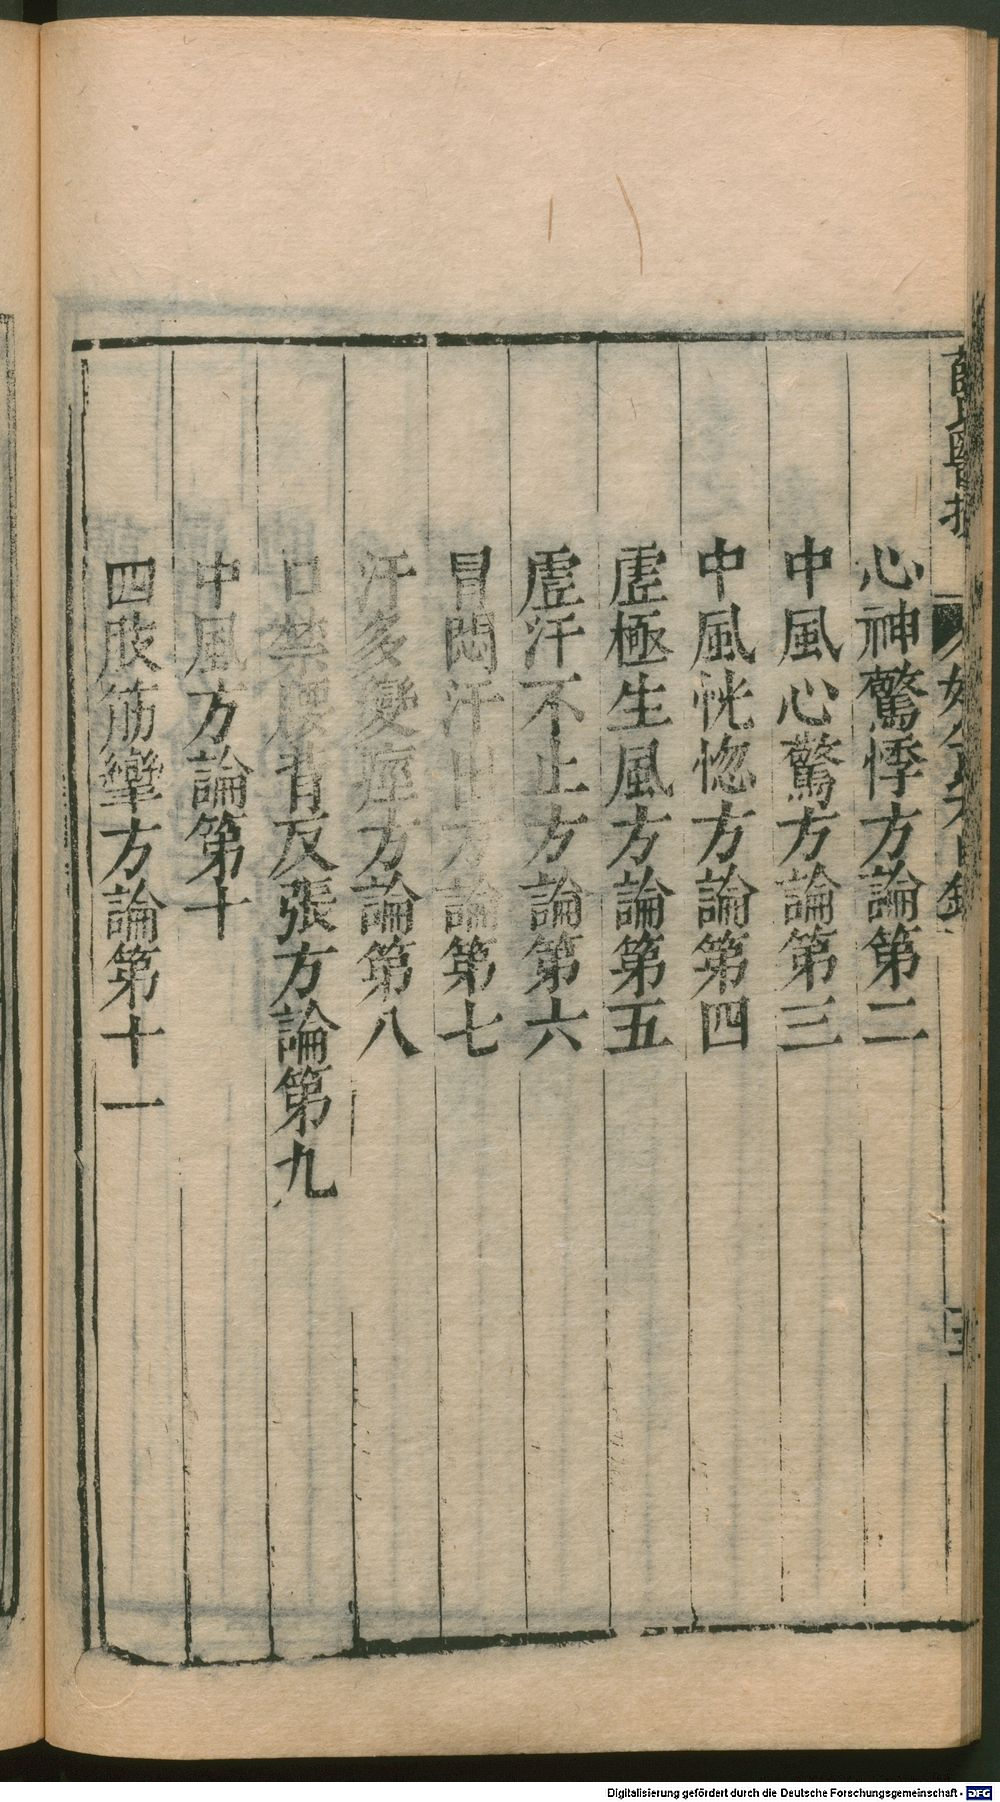 心神驚悸方論第二
中風心驚方論第三
中風恍惚方論第四
虛極生風方論第五
虛汗不止方論第六
冒悶汗出方論第七
汗多變痙方論第八
口禁腰背反張方論第九
中風方論第十
四肢筋攣方論第十一
Digitalisierung gefördert durch die Deutsche Forschungsgemeinschaft - DFG